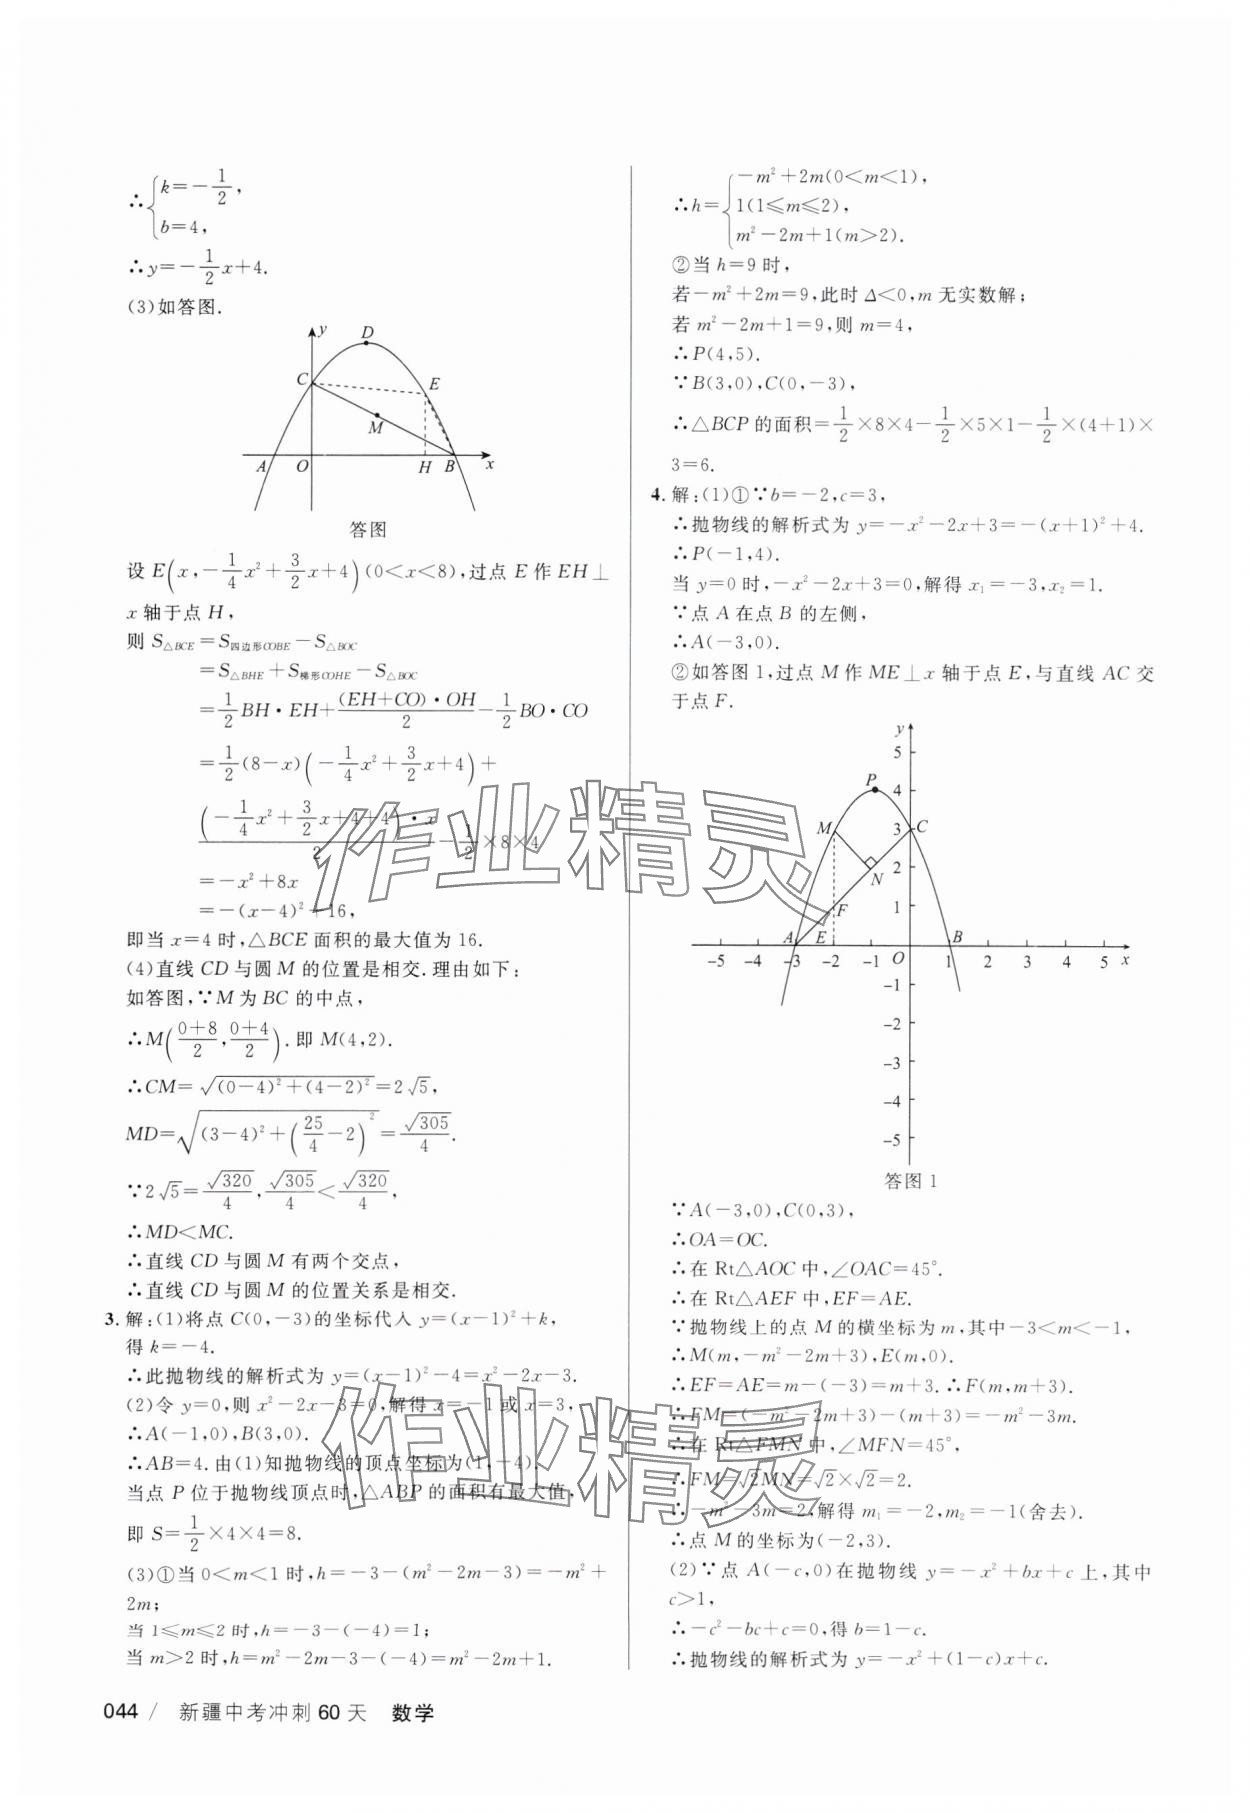 ∴{k=-1/2,
b=4,
∴y=-1/2x+4.
(3)如答图.
y
D
C
E
M
A
O
H
B
x
答图
设 E(x,-1/4x²+3/2x+4)(0<x<8),过点 E 作 EH⊥
x 轴于点 H,
则 S△BCE=S四边形COBE-S△BOC
=S△BHE+S梯形COHE-S△BOC
=1/2BH·EH+(EH+CO)·OH/2-1/2BO·CO
=1/2(8-x)(-1/4x²+3/2x+4)+
(-1/4x²+3/2x+4+4)·x/2-1/2×8×4
=-x²+8x
=-(x-4)²+16,
即当 x=4 时,△BCE 面积的最大值为 16.
(4)直线 CD 与圆 M 的位置是相交.理由如下:
如答图,∵M 为 BC 的中点,
∴M(0+8/2,0+4/2).即 M(4,2).
∴CM=√(0-4)²+(4-2)²=2√5,
MD=√(3-4)²+(25/4-2)²=√305/4.
∵2√5=√320/4,√305/4<√320/4,
∴MD<MC.
∴直线 CD 与圆 M 有两个交点,
∴直线 CD 与圆 M 的位置关系是相交.
3.解:(1)将点 C(0,-3)的坐标代入 y=(x-1)²+k,
得 k=-4.
∴此抛物线的解析式为 y=(x-1)²-4=x²-2x-3.
(2)令 y=0,则 x²-2x-3=0,解得 x=-1 或 x=3,
∴A(-1,0),B(3,0).
∴AB=4.由(1)知抛物线的顶点坐标为(1,-4).
当点 P 位于抛物线顶点时,△ABP 的面积有最大值,
即 S=1/2×4×4=8.
(3)①当 0<m<1 时,h=-3-(m²-2m-3)=-m²+
2m;
当 1≤m≤2 时,h=-3-(-4)=1;
当 m>2 时,h=m²-2m-3-(-4)=m²-2m+1.
∴h={-m²+2m(0<m<1),
1(1≤m≤2),
m²-2m+1(m>2).
②当 h=9 时,
若-m²+2m=9,此时 Δ<0,m 无实数解;
若 m²-2m+1=9,则 m=4,
∴P(4,5).
∵B(3,0),C(0,-3),
∴△BCP 的面积=1/2×8×4-1/2×5×1-1/2×(4+1)×
3=6.
4.解:(1)①∵b=-2,c=3,
∴抛物线的解析式为 y=-x²-2x+3=-(x+1)²+4.
∴P(-1,4).
当 y=0 时,-x²-2x+3=0,解得 x₁=-3,x₂=1.
∵点 A 在点 B 的左侧,
∴A(-3,0).
②如答图 1,过点 M 作 ME⊥x 轴于点 E,与直线 AC 交
于点 F.
y
5
P
4
M
3
C
2
N
1
F
A
E
B
-5 -4 -3 -2 -1 O 1 2 3 4 5 x
-1
-2
-3
-4
-5
答图 1
∵A(-3,0),C(0,3),
∴OA=OC.
∴在 Rt△AOC 中,∠OAC=45°.
∴在 Rt△AEF 中,EF=AE.
∵抛物线上的点 M 的横坐标为 m,其中-3<m<-1,
∴M(m,-m²-2m+3),E(m,0).
∴EF=AE=m-(-3)=m+3.∴F(m,m+3).
∴FM=(-m²-2m+3)-(m+3)=-m²-3m.
∴在 Rt△FMN 中,∠MFN=45°,
∴FM=√2MN=√2×√2=2.
∴-m²-3m=2,解得 m₁=-2,m₂=-1(舍去).
∴点 M 的坐标为(-2,3).
(2)∵点 A(-c,0)在抛物线 y=-x²+bx+c 上,其中
c>1,
∴-c²-bc+c=0,得 b=1-c.
∴抛物线的解析式为 y=-x²+(1-c)x+c.
作业精灵
作业精灵
044 / 新疆中考冲刺 60 天 数学